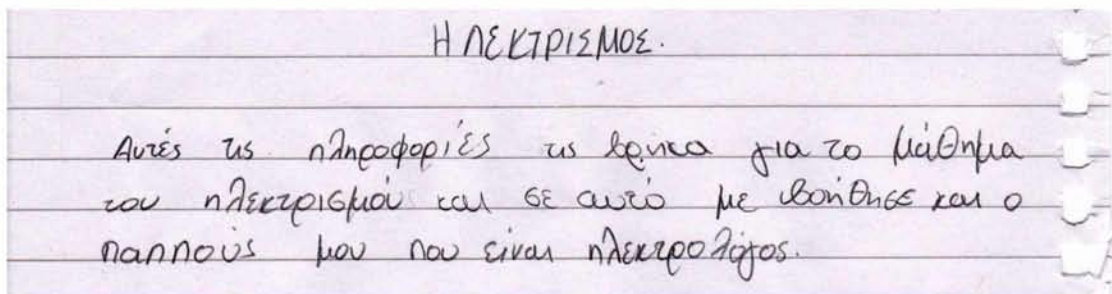 ΗΛΕΚΤΡΙΣΜΟΣ.
Αυτές τις πληροφορίές τις βρήκα για το μάθημα
του ηλεκτρισμού και σε αυτό με βοήθησε και ο
παππούς μου που είναι ηλεκτρολόγος.